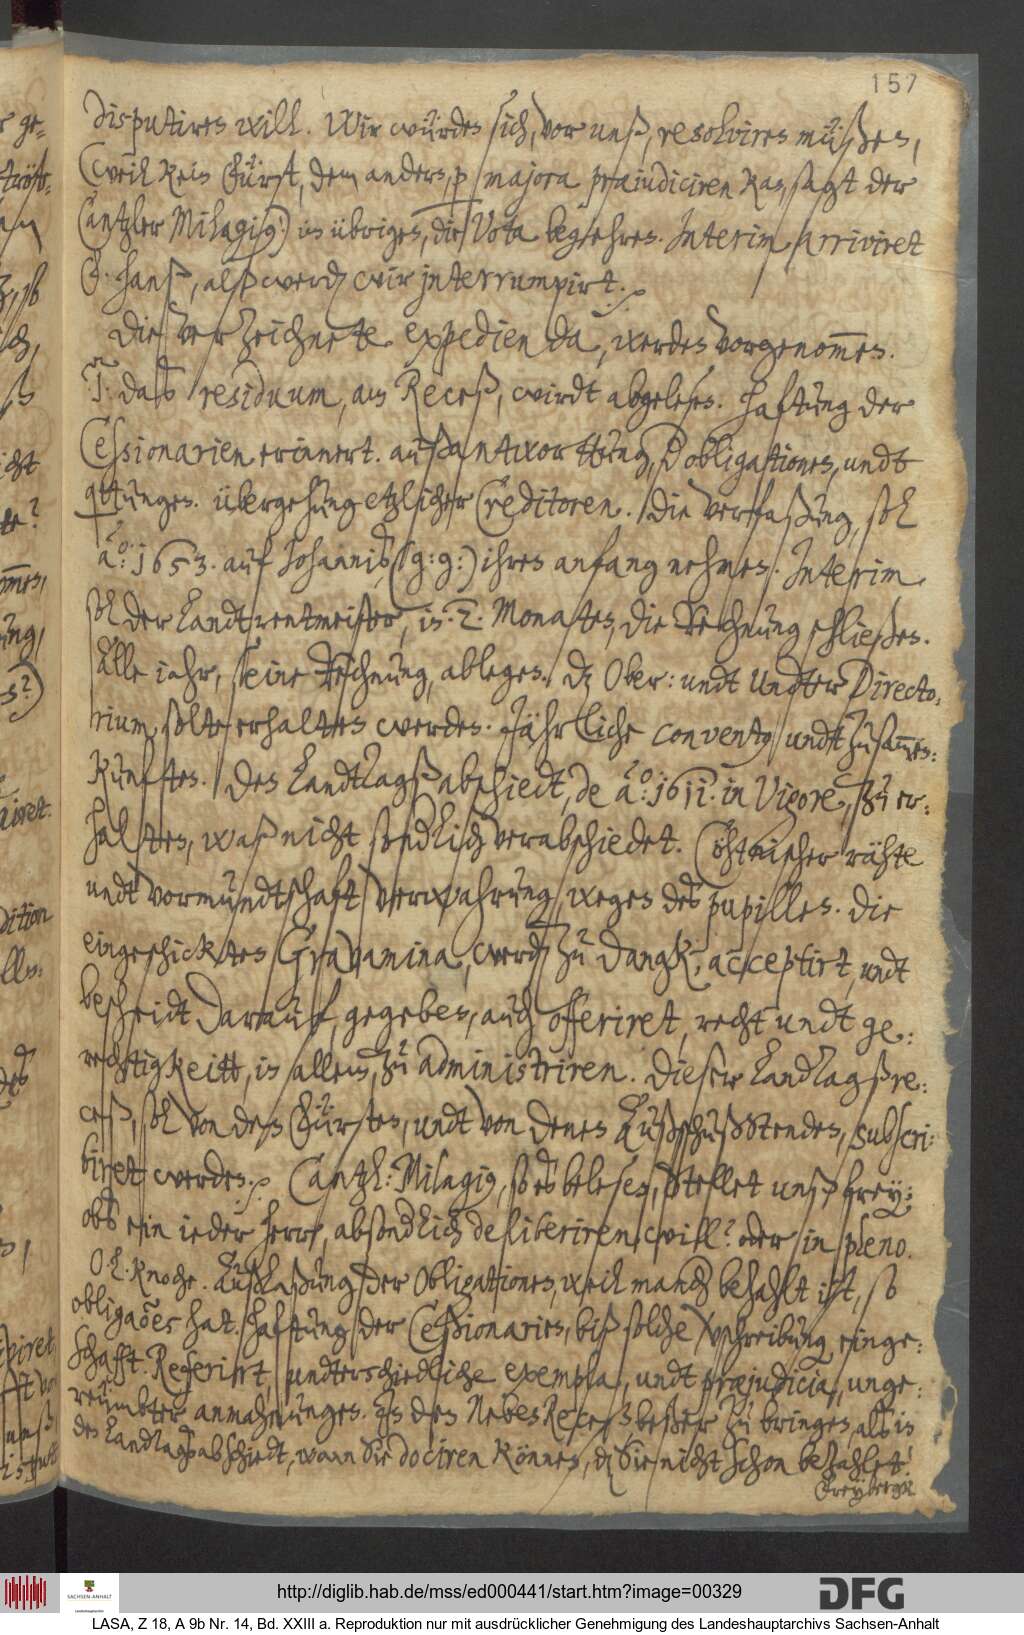 157
disputiren will. Wir würden sich, vor unß, resolviren müßen,
(weil kein Fürst, dem andern, p majora præjudiciren kan, sagt der
Cantzler Milagius) im übrigen, die Vota begehren. Interim arriviret
F. Hanß, alß werden wir interrumpirt.
Die verzeichnete expedienda, werden vorgenommen.
J: daß residuum, am Receß, wirdt abgelesen. Haftung der
Cessionarien erinnert. außantworttung, der obligationen, undt
quittungen. übergehung etzlicher Creditoren. Die verfaßung, soll
a.o: 1653. auf Johannis, (g: g:) ihren anfang nehmen. Interim
soll der Landtrentmeister, in 2. Monaten, die Rechnung schließen.
Alle iahr, seine Rechnung, ablegen. dz Ober: undt Undter Directo-
rium, solte erhalten werden. Jährliche conventus undt zusammen:
kunften. Den Landtagßabschiedt, de a.o: 1611. in Vigore, zu er-
halten, waß nicht sonderlich verabschiedet. Cöthnischer rähte
undt vormundtschaft verwahrung wegen des pupillen. Die
eingeschickten Gravamina, werden zu dangk, acceptirt, undt
bescheidt darauf, gegeben, auch offeriret, recht undt ge-
rechtigkeitt, in allem, zu administriren. Dieser Landtagßre-
ceß, soll von den Fürsten, undt von denen Außschuß Stenden, subscri-
biret werden. Cantzl: Milagius, so es belesen, stellet unß frey:
ob ein ieder herr, absonderlich deliberiren will? oder in pleno.
O. L. Knoche. Außlaßung der Obligationen, weil manch behahlt ist, so
obligaões hat. Haftung der Cessionarien, biß solche verschreibung einge-
schafft. Referirt, undterschiedliche exempla, undt præjudicia, unge-
reumbter anmahnungen. In den Neben Receß, beßer zu bringen, alß in
den Landtagsabschiedt, wann sie dociren können, dz sie nicht schon bezahlet.
Freybergk
http://diglib.hab.de/mss/ed000441/start.htm?image=00329
SACHSEN-ANHALT
DFG
LASA, Z 18, A 9b Nr. 14, Bd. XXIII a. Reproduktion nur mit ausdrücklicher Genehmigung des Landeshauptarchivs Sachsen-Anhalt